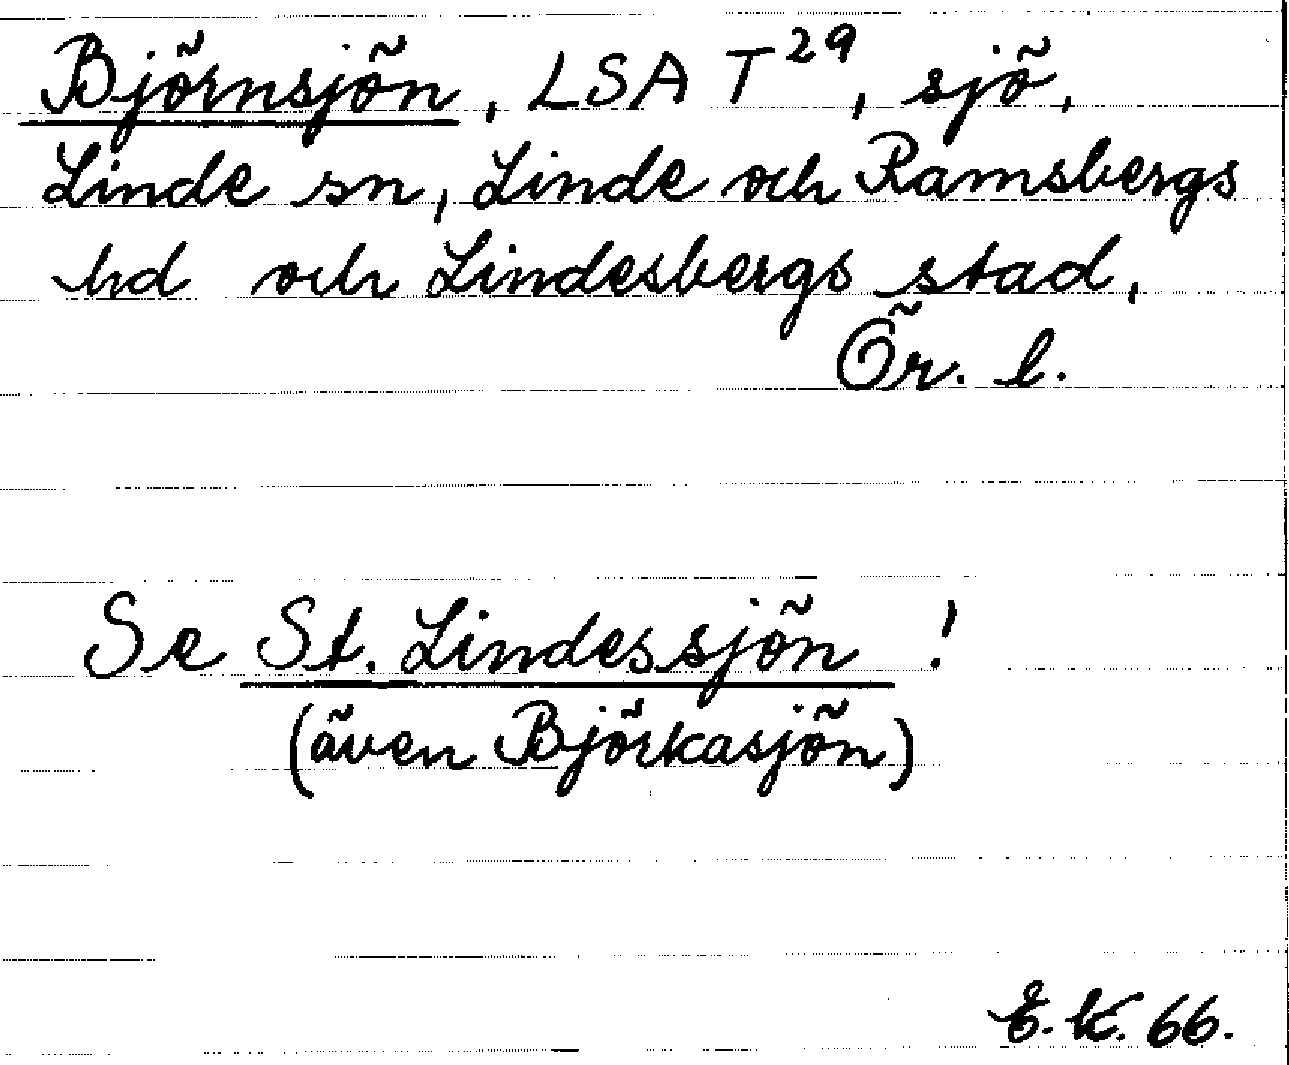 Björnsjön, LSA T²⁹, sjö,
Linde sn, Linde och Ramsbergs
hd och Lindesbergs stad,
Ör. l.
Se St. Lindessjön !
(även Björkasjön)
E.K. 66.